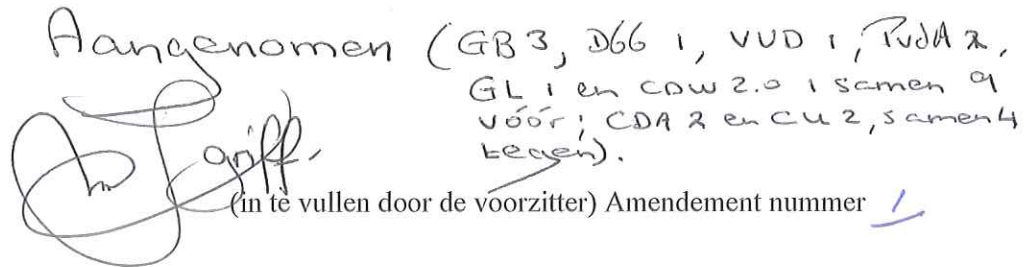 Aangenomen (GB 3, D66 1, VVD 1, PvdA 2,
GL 1 en CDW 2.0 1 samen 9
vóór; CDA 2 en CU 2, samen 4
tegen).
griff.
(in te vullen door de voorzitter) Amendement nummer 1